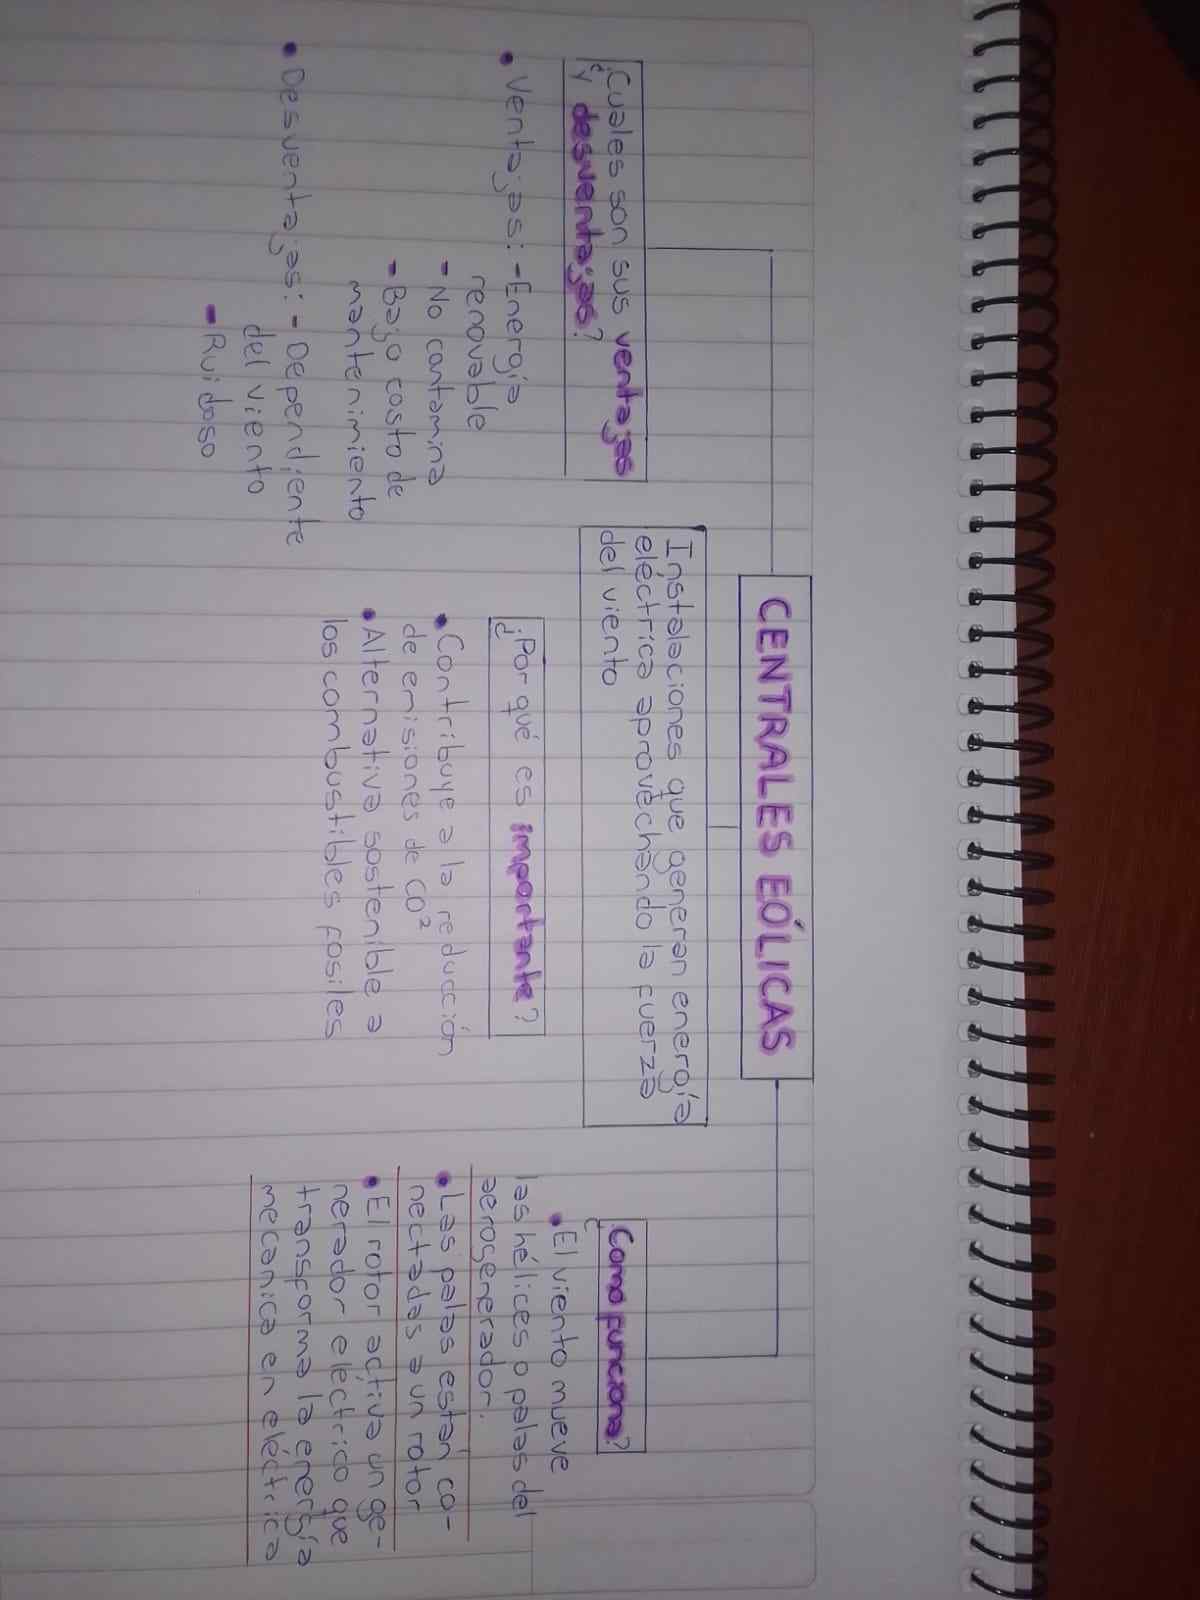 CENTRALES EÓLICAS
Instalaciones que generan energía
eléctrica aprovechando la fuerza
del viento
¿Cuales son sus ventajas
y desventajas?
• Ventajas: - Energía
renovable
- No contamina
- Bajo costo de
mantenimiento
• Desventajas: - Dependiente
del viento
- Ruidoso
¿Por qué es importante?
• Contribuye a la reducción
de emisiones de CO²
• Alternativa sostenible a
los combustibles fosiles
¿Como funciona?
• El viento mueve
las hélices o palas del
aerogenerador.
• Las palas estan co-
nectadas a un rotor
• El rotor activa un ge-
nerador electrico que
transforma la energía
mecanica en eléctrica